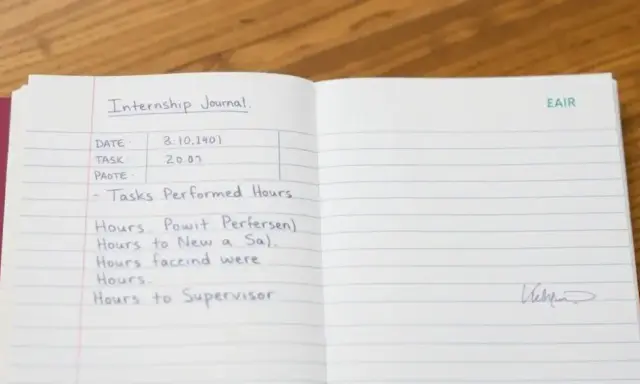 Internship Journal.
DATE · 3.10.1401
TASK · 20.07
PAOTE ·
- Tasks Performed Hours
Hours Powit Perfersen)
Hours to New a Sa).
Hours faceind were
Hours.
Hours to Supervisor
EAIR